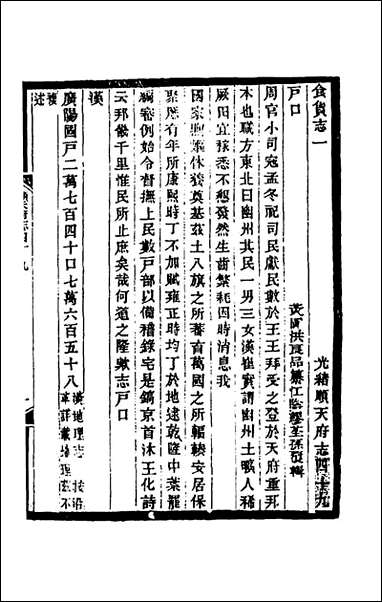 光緒順天府志四十九
食貨志一
黃岡洪良品纂江陰繆荃孫覆輯
戶口
周官小司寇孟冬祀司民獻民數於王王拜受之登於天府重邦
本也職方東北曰幽州其民一男三女漢崔寔謂幽州土曠人稀
厥田宜稼悉不墾發然生齒繁耗因時消息我
國家煦蘇休養奠基茲土八旗之所蕃百萬國之所輻輳安居保
聚歷有年所康熙時丁不加賦雍正時均丁於地逮乾隆中葉罷
編審例始令督撫上民數戶部以備稽錄宅是鎬京首沐王化詩
云邦畿千里惟民所止庶矣哉何道之隆歟志戶口
漢
廣陽國戶二萬七百四十口七萬六百五十八漢地理志 按沿
革詳叢地理茲不
複
述